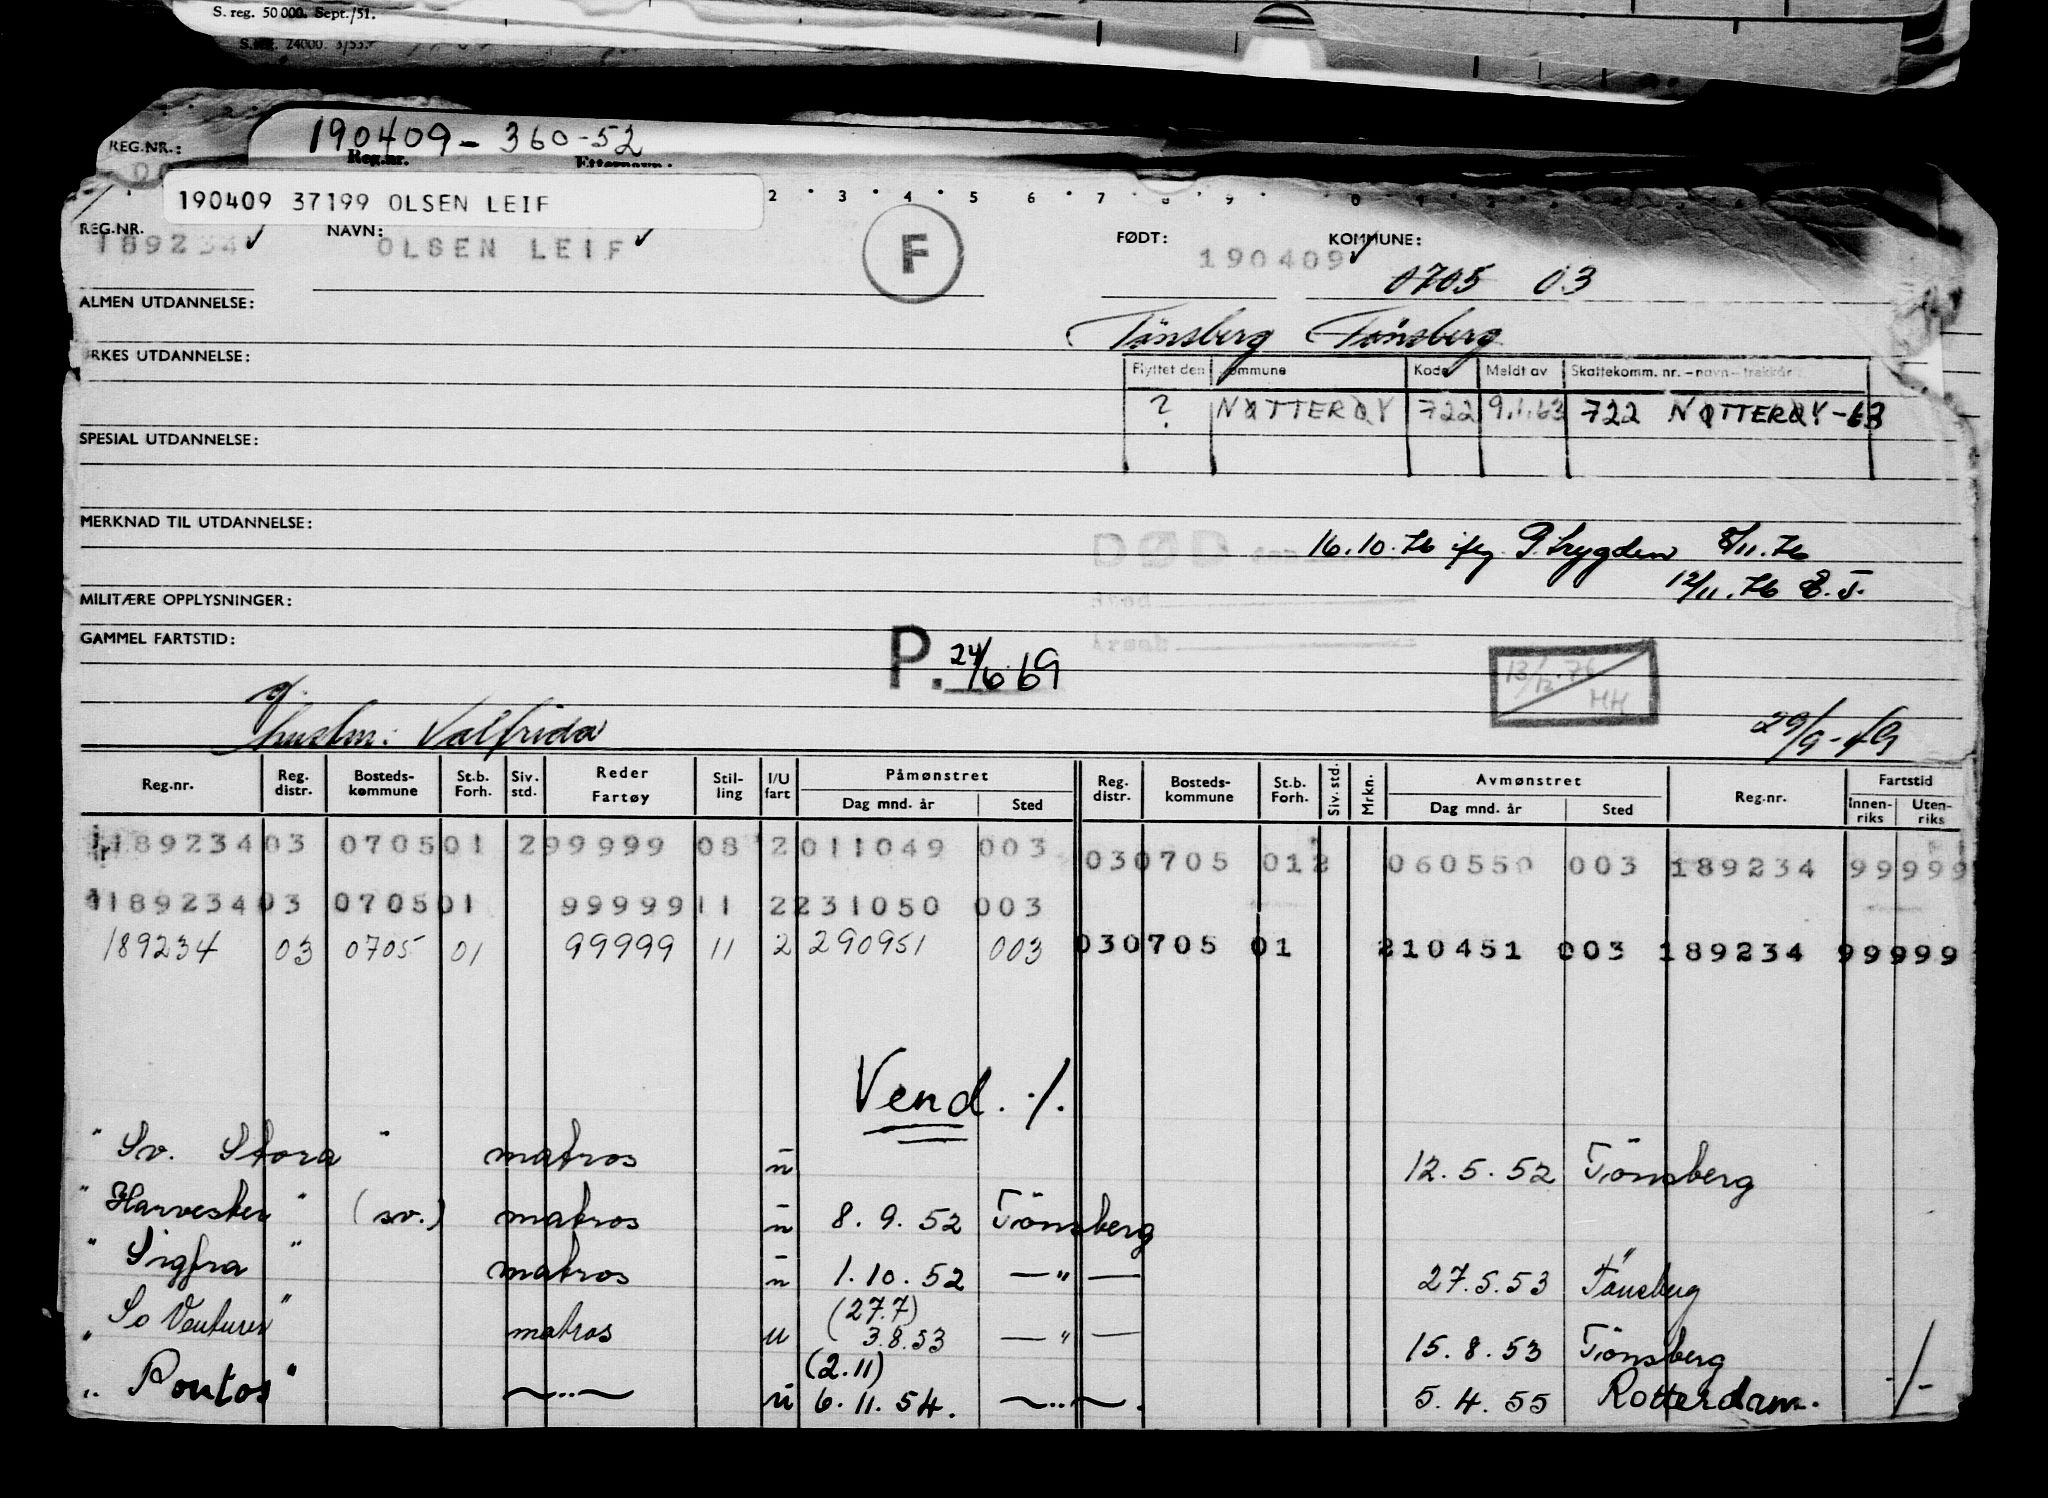 S. reg. 50 000. Sept./51.
24000. 3/53.
REG.NR.:
190409 - 360-52
Reg.nr. Etternavn.
190409 37199 OLSEN LEIF
2 3 4 5 6 7 8 9 0
REG.NR. NAVN: FØDT: KOMMUNE:
189234 OLSEN LEIF F 190409
0705 03
ALMEN UTDANNELSE:
Tönsberg Tönsberg
RKES UTDANNELSE:
Flyttet den ommune Kode Meldt av Skattekomm. nr. – navn – trekkår
? NØTTERØY 722 9.1.63 722 NØTTERØY -63
SPESIAL UTDANNELSE:
MERKNAD TIL UTDANNELSE:
DØD den 16.10.76 ifg. P.trygden 8/11.76
12/11.76 E.T.
MILITÆRE OPPLYSNINGER:
GAMMEL FARTSTID:
Årsak
P. 24/6 69
13/12.76
HH
g.
hustru: Valfrida
29/9-49
Reg.nr. Reg. distr. Bosteds- kommune St.b. Forh. Siv. std. Reder Fartøy Stil- ling I/U fart Påmønstret Reg. distr. Bosteds- kommune St.b. Forh. Siv. std. Mrkn. Avmønstret Reg.nr. Fartstid
Dag mnd. år Sted Dag mnd. år Sted Innen- riks Uten- riks
189234 03 0705 01 2 99999 08 2 011049 003 03 0705 01 2 060550 003 189234 99 999
189234 03 0705 01 99999 11 2 231050 003
189234 03 0705 01 99999 11 2 290951 003 03 0705 01 210451 003 189234 99 999
Vend. ./.
" Sv. Stora " matros u 12.5.52 Tönsberg
" Harvester " (sv.) matros u 8.9.52 Tönsberg
" Sigfra " matros u 1.10.52 — " — 27.5.53 Tönsberg
(27.7)
" So Venturer " matros u 3.8.53 — " — 15.8.53 Tönsberg
(2.11)
" Pontos " ~..~ u 6.11.54. ~..~. 5.4.55 Rotterdam. -/-